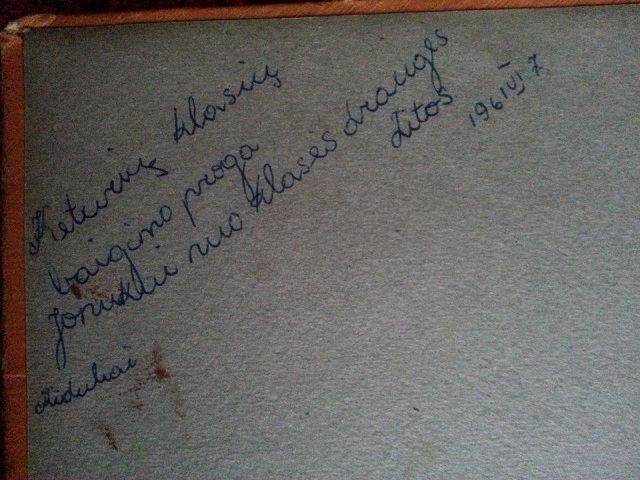 Keturių klasių
baigimo proga
Jonukui nuo klasės draugės
Litos
196 VI 7
Aidukai